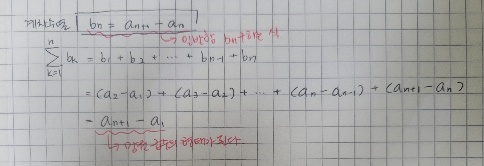 계차수열 bn = an+1 - an
→ 일반항 bn 구하는 식
n
∑ bk = b1 + b2 + ··· + bn-1 + bn
k=1
= (a2-a1) + (a3-a2) + ··· + (an-an-1) + (an+1-an)
= an+1 - a1